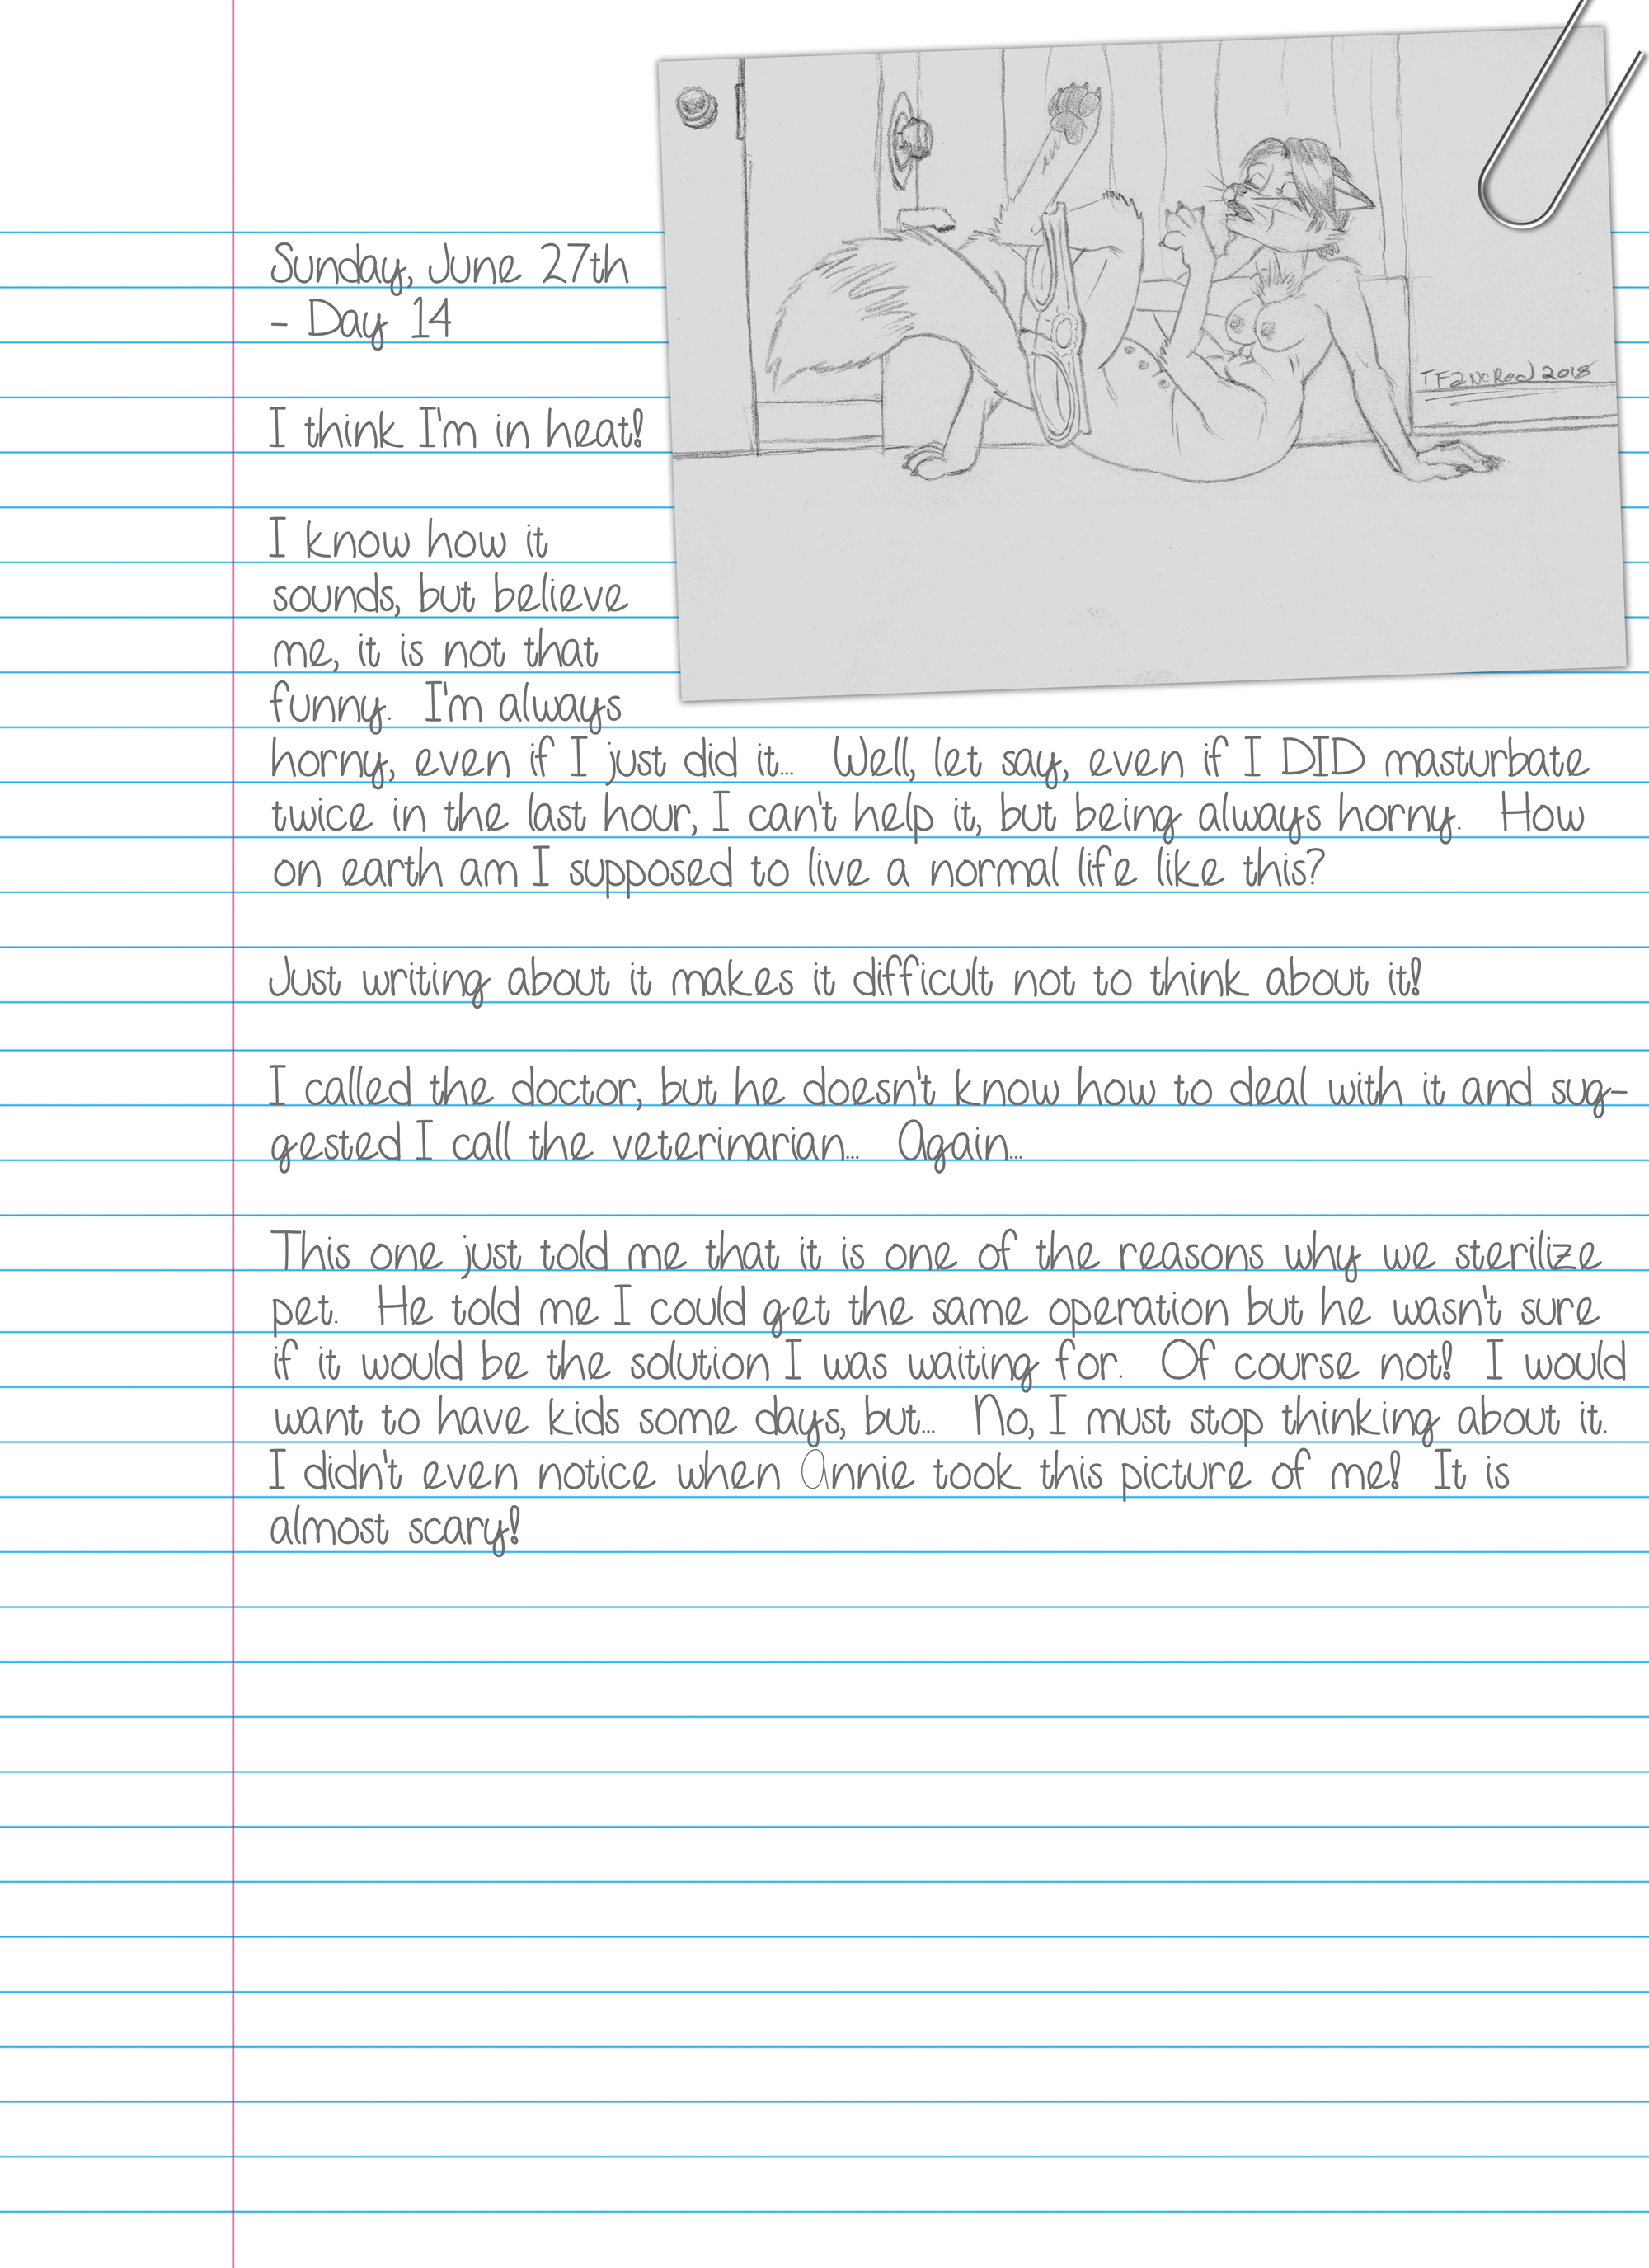 TF2NcRed 2018
Sunday, June 27th
- Day 14
I think I'm in heat!
I know how it
sounds, but believe
me, it is not that
funny. I'm always
horny, even if I just did it... Well, let say, even if I DID masturbate
twice in the last hour, I can't help it, but being always horny. How
on earth am I supposed to live a normal life like this?
Just writing about it makes it difficult not to think about it!
I called the doctor, but he doesn't know how to deal with it and sug-
gested I call the veterinarian... Again...
This one just told me that it is one of the reasons why we sterilize
pet. He told me I could get the same operation but he wasn't sure
if it would be the solution I was waiting for. Of course not! I would
want to have kids some days, but... No, I must stop thinking about it.
I didn't even notice when Annie took this picture of me! It is
almost scary!